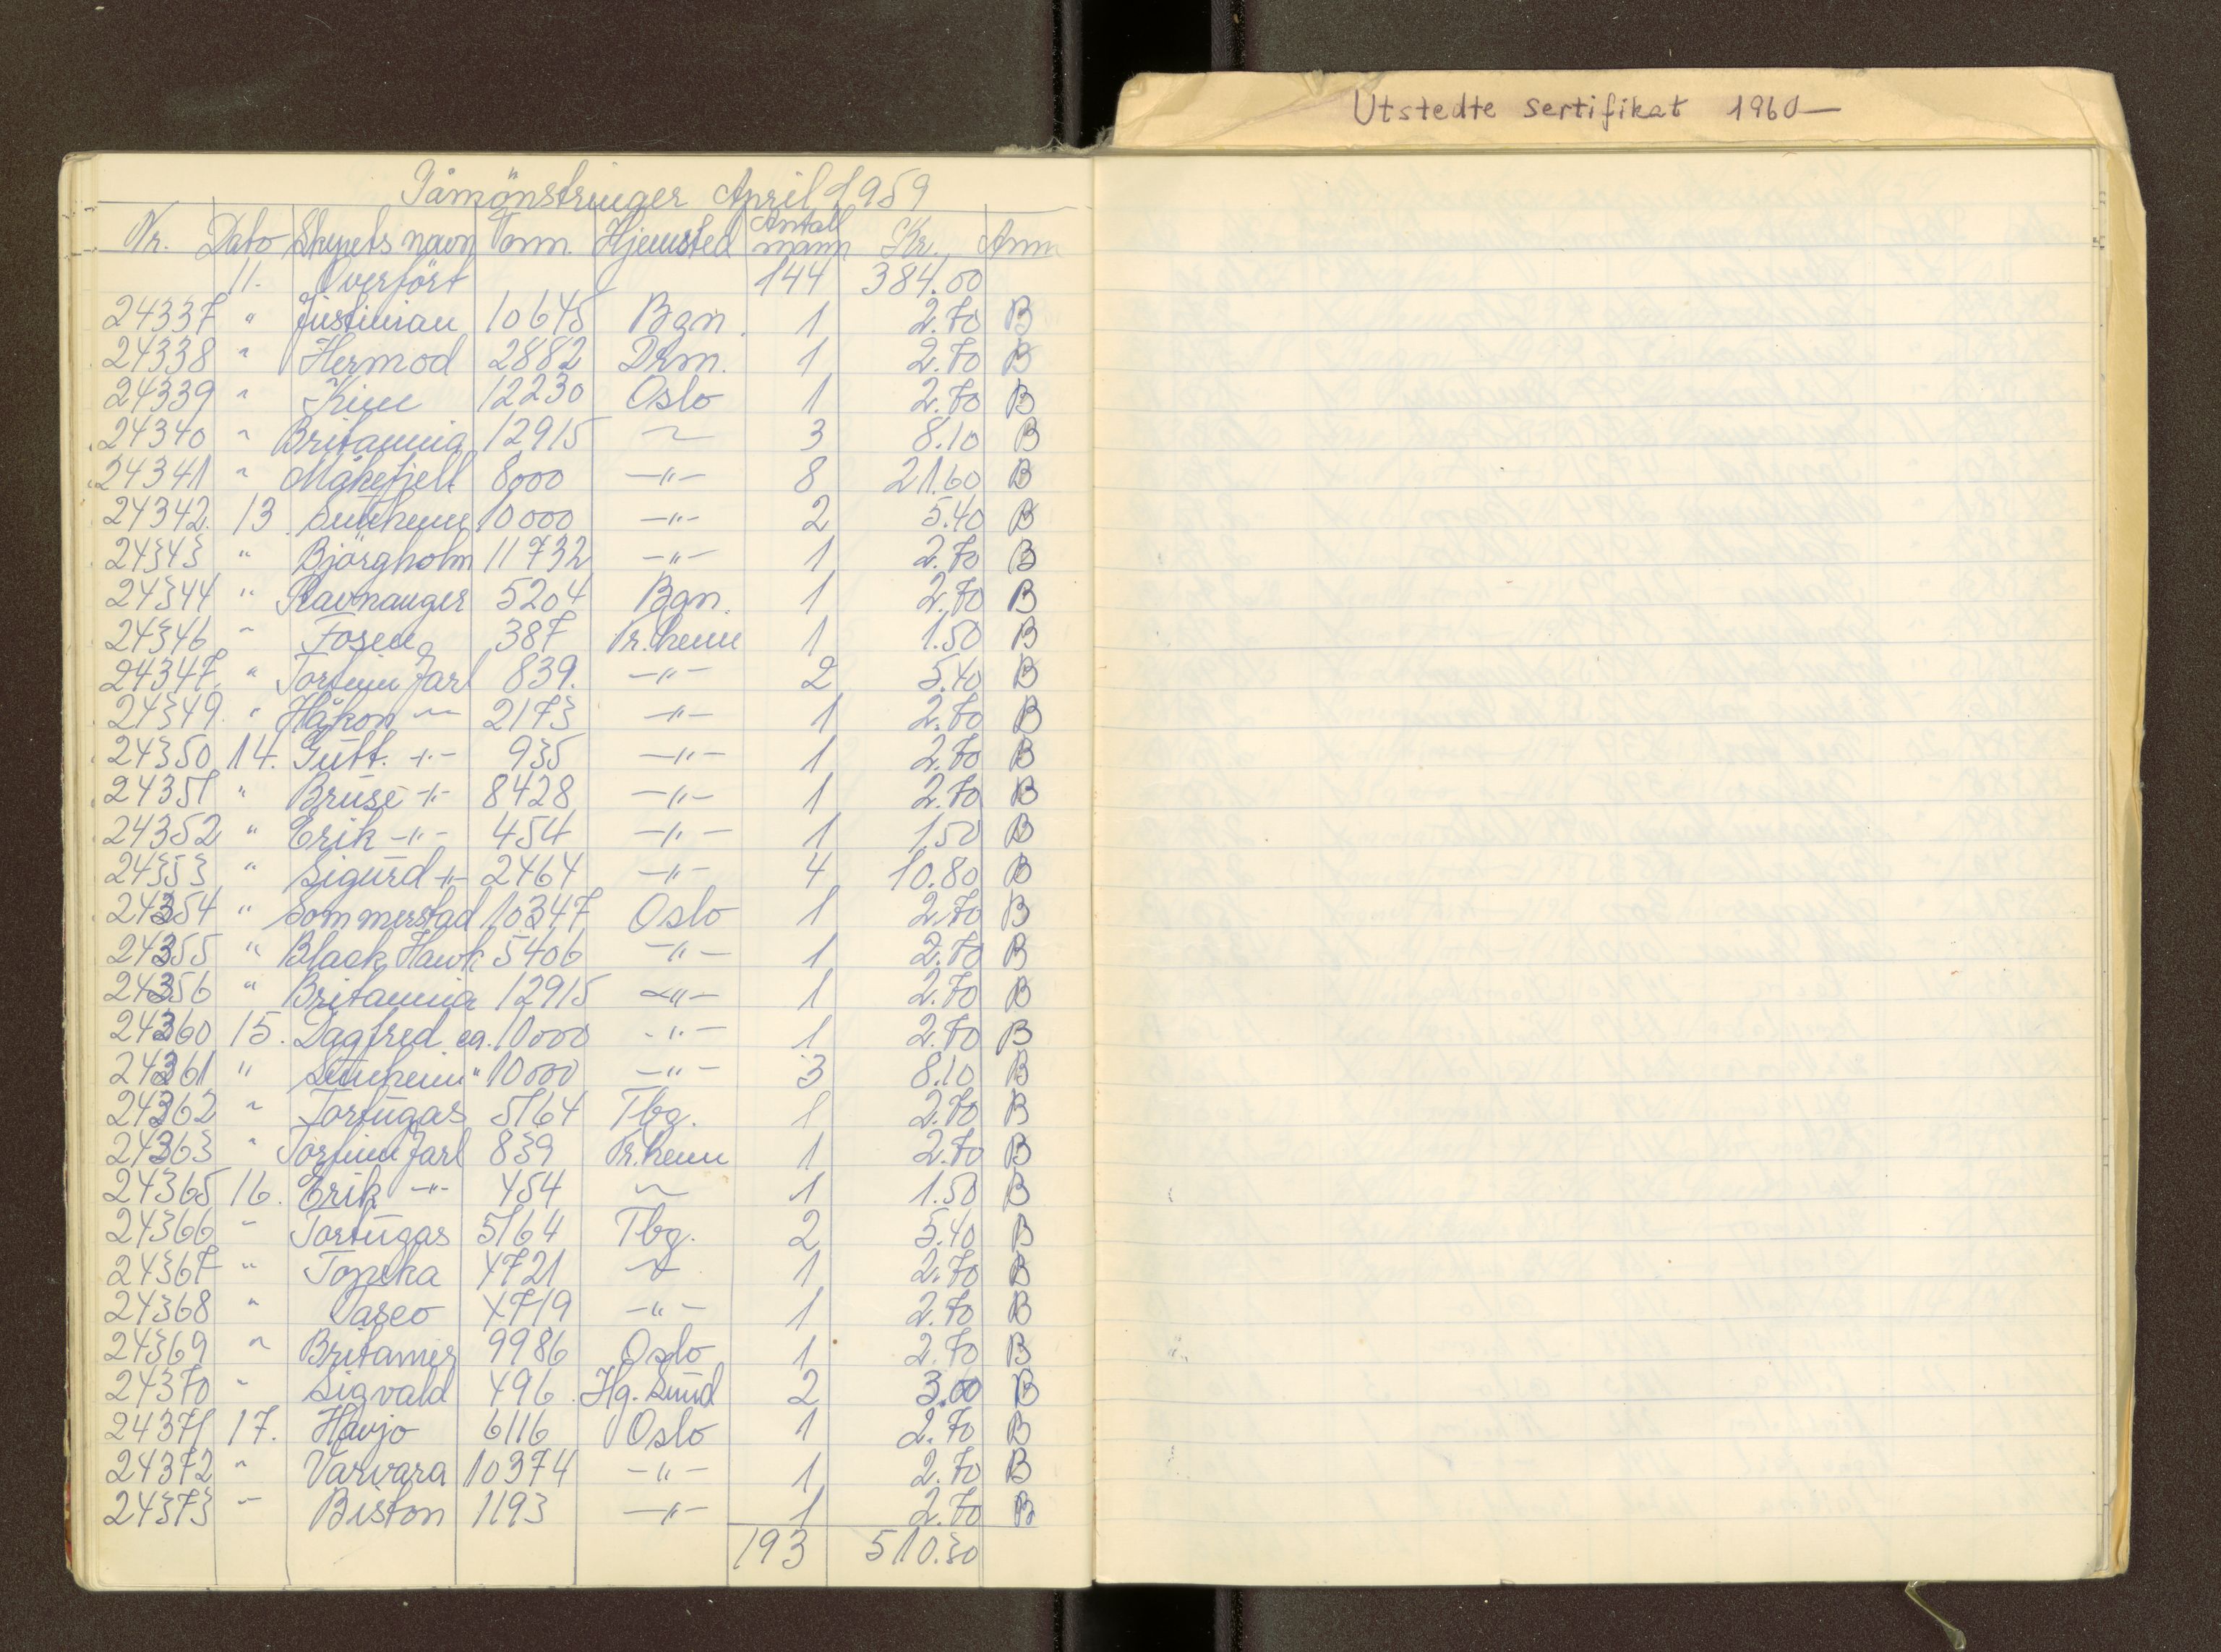 Utstedte sertifikat 1960—
Påmönstringer April 1959
Nr. Dato Skipets navn Tonn. Hjemsted Antall mann Kr. Anm
11. Overfört 144 384.00
24337 " Justinian 10645 Bgn. 1 2.70 B
24338 " Hermod 2882 Drm. 1 2.70 B
24339 " Kim 12230 Oslo 1 2.70 B
24340 " Britannia 12915 — 3 8.10 B
24341 " Måkefjell 8000 —"— 8 21.60 B
24342 13 Sunheim 10000 —"— 2 5.40 B
24343 " Björgholm 11732 —"— 1 2.70 B
24344 " Ravnanger 5204 Bgn. 1 2.70 B
24346 " Fosen 387 Tr.heim 1 1.50 B
24347 " Torfinn Jarl 839. —"— 2 5.40 B
24349 " Håkon — 2173 —"— 1 2.70 B
24350 14. Gutt. —"— 935 —"— 1 2.70 B
24351 " Bruse —"— 8428 —"— 1 2.70 B
24352 " Erik —"— 454 —"— 1 1.50 B
24353 " Sigurd —"— 2464 —"— 4 10.80 B
24354 " Sommerstad 10347 Oslo 1 2.70 B
24355 " Black Hawk 5406 —"— 1 2.70 B
24356 " Britannia 12915 —"— 1 2.70 B
24360 15. Dagfred ca. 10000 —"— 1 2.70 B
24361 " Sunheim " 10000 —"— 3 8.10 B
24362 " Tortugas 5164 Tbg. 1 2.70 B
24363 " Torfinn Jarl 839 Tr.heim 1 2.70 B
24365 16. Erik —"— 454 — 1 1.50 B
24366 " Tortugas 5164 Tbg. 2 5.40 B
24367 " Topeka 4721 —"— 1 2.70 B
24368 " 4719 —"— 1 2.70 B
24369 " Britamer 9986 Oslo 1 2.70 B
24370 " Sigvald 496 Hg.sund 2 3.00 B
24371 17. Havjo 6116 Oslo 1 2.70 B
24372 " Varvara 10374 —"— 1 2.70 B
24373 " Biston 1193 —"— 1 2.70 B
193 510.30